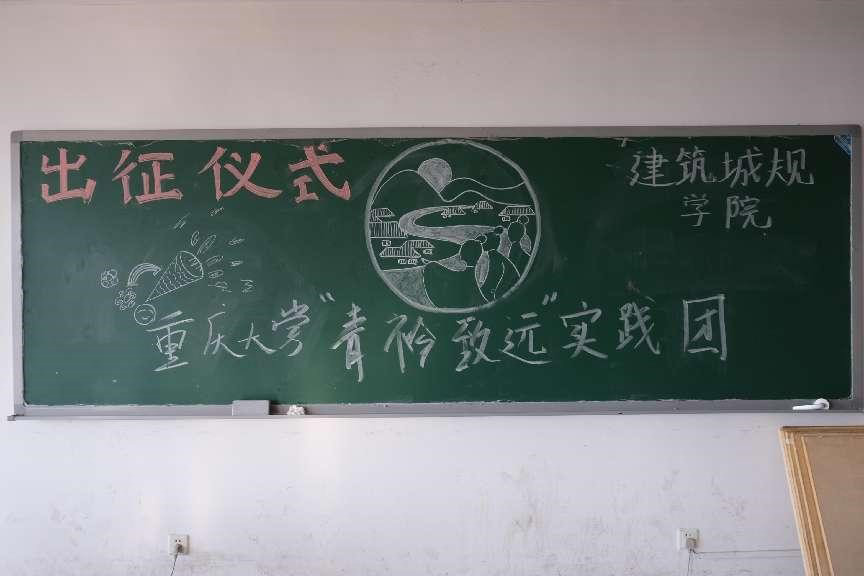 出征仪式
建筑城规
学院
重庆大学"青衿致远"实践团